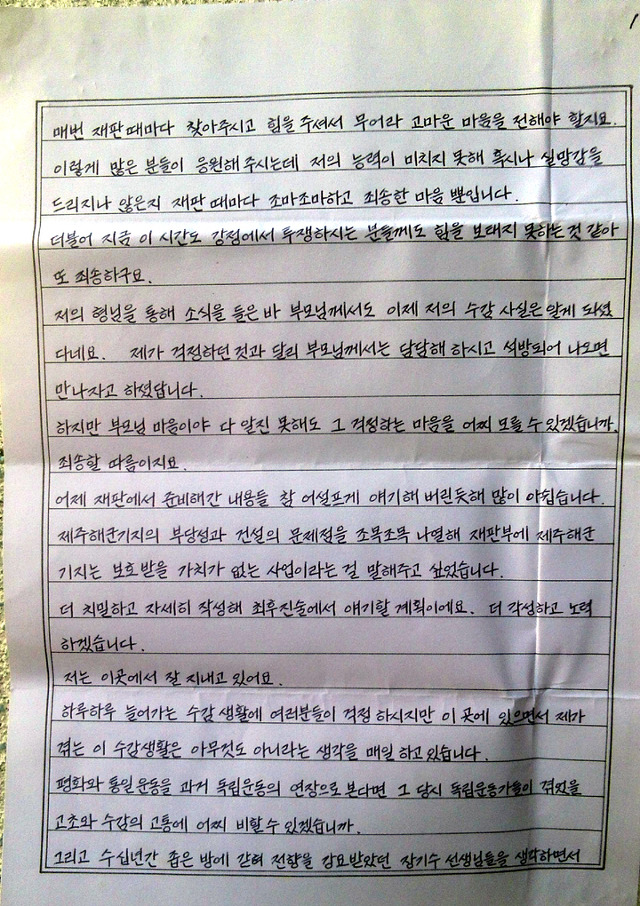 1
매번 재판때마다 찾아주시고 힘을 주셔서 무어라 고마운 마음을 전해야 할지요.
이렇게 많은 분들이 응원해 주시는데 저의 능력이 미치지 못해 혹시나 실망감을
드리지나 않은지 재판 때마다 조마조마하고 죄송한 마음 뿐입니다.
더불어 지금 이 시간도 강정에서 투쟁하시는 분들께도 힘을 보태지 못하는것 같아
또 죄송하구요.
저의 형님을 통해 소식을 들은바 부모님께서도 이제 저의 수감 사실은 알게 되셨
다네요. 제가 걱정하던것과 달리 부모님께서는 담담해 하시고 석방되어 나오면
만나자고 하셨답니다.
하지만 부모님 마음이야 다 알진 못해도 그 걱정하는 마음을 어찌 모를 수 있겠습니까.
죄송할 따름이지요.
어제 재판에서 준비해간 내용들 참 어설프게 얘기해 버린듯해 많이 아쉽습니다.
제주해군기지의 부당성과 건설의 문제점을 조목조목 나열해 재판부에 제주해군
기지는 보호받을 가치가 없는 사업이라는 걸 말해주고 싶었습니다.
더 치밀하고 자세히 작성해 최후진술에서 얘기할 계획이에요. 더 각성하고 노력
하겠습니다.
저는 이곳에서 잘 지내고 있어요.
하루하루 늘어가는 수감 생활에 여러분들이 걱정 하시지만 이 곳에 있으면서 제가
겪는 이 수감생활은 아무것도 아니라는 생각을 매일 하고있습니다.
평화와 통일운동을 과거 독립운동의 연장으로 본다면 그 당시 독립운동가들이 겪었을
고초와 수감의 고통에 어찌 비할 수 있겠습니까.
그리고 수십년간 좁은 방에 갇혀 전향을 강요받았던 장기수 선생님들을 생각하면서